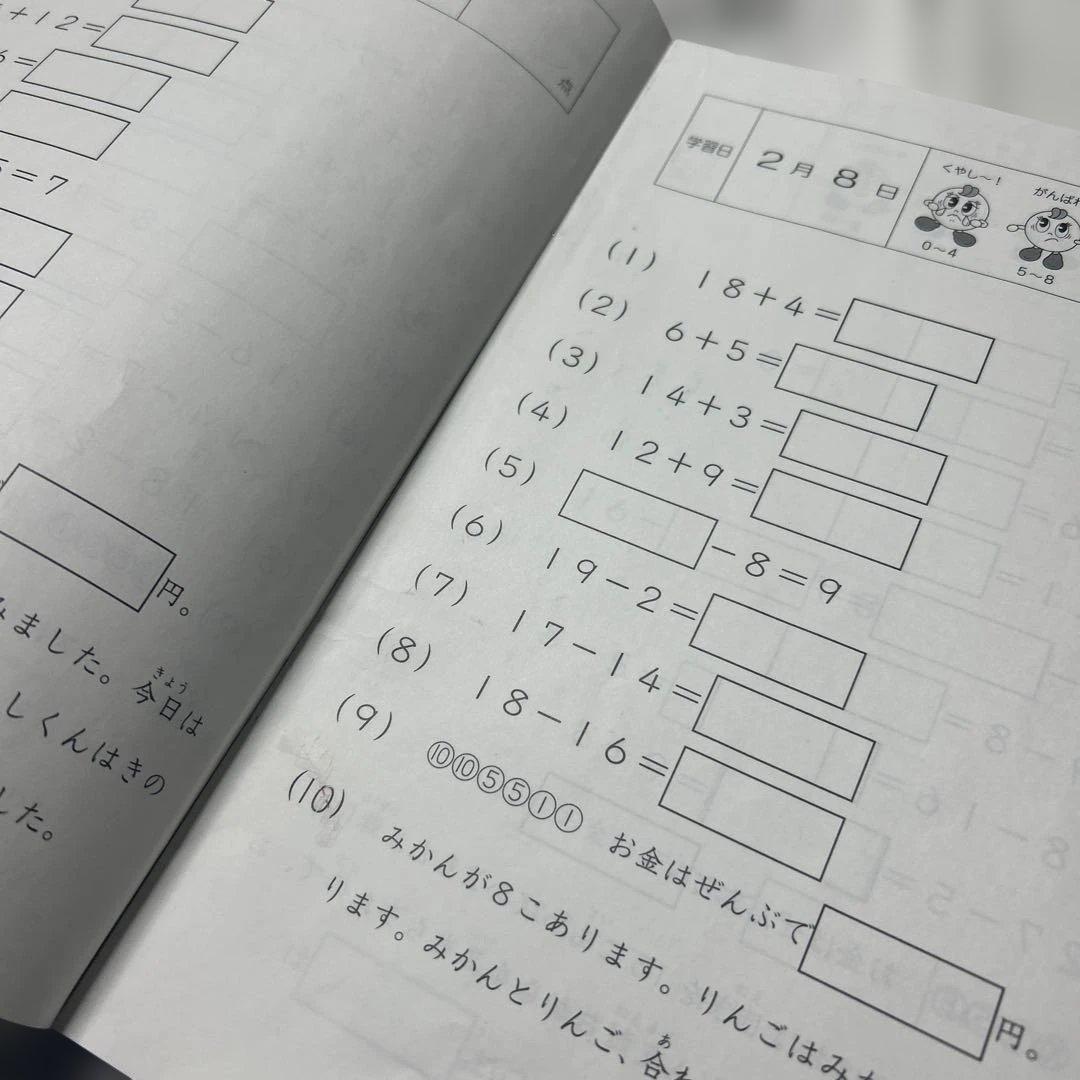 +12=
6=
5=7
円。
みました。今日は
きょう
しくんはきの
した。
点
学習日
2月8日
くやし〜！
がんばれ
0〜4
5〜8
(1) 18+4=
(2) 6+5=
(3) 14+3=
(4) 12+9=
(5) −8=9
(6) 19−2=
(7) 17−14=
(8) 18−16=
(9) ⑩⑩⑤⑤①① お金はぜんぶで 円。
(10) みかんが8こあります。りんごはみか
ります。みかんとりんご、合わ
あ